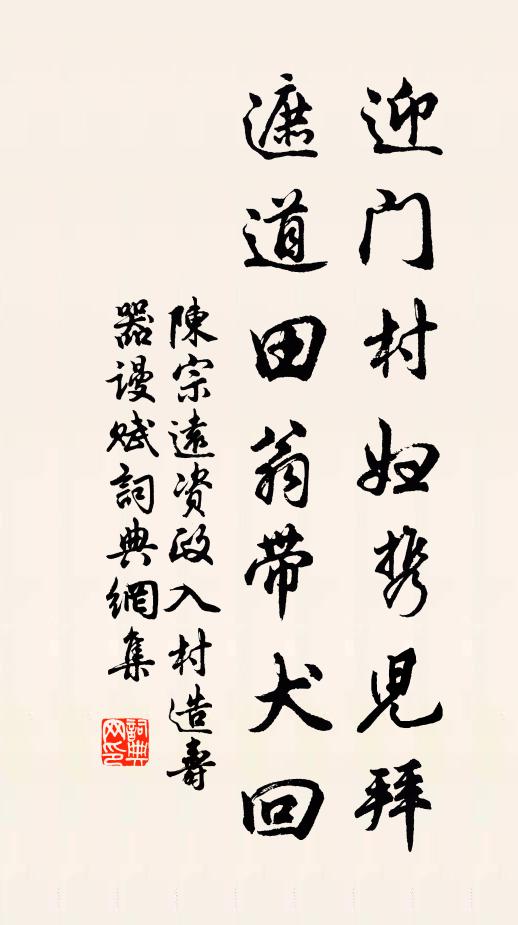 迎门村妇携児拜
遮道田翁带犬回
陳宗遠资政入村造壽
器谩赋詞典網集
詞典
网印